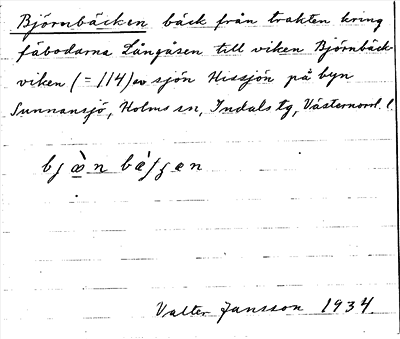 Björnbäcken bäck från trakten kring
fäbodarna Långåsen till viken Björnbäck-
viken (= 114) av sjön Hissjön på byn
Sunnansjö, Holms sn, Indals tg, Västernorrl. l.
Valter Jansson 1934